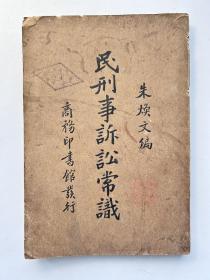 朱煥文編
民刑事訴訟常識
商務印書館發行